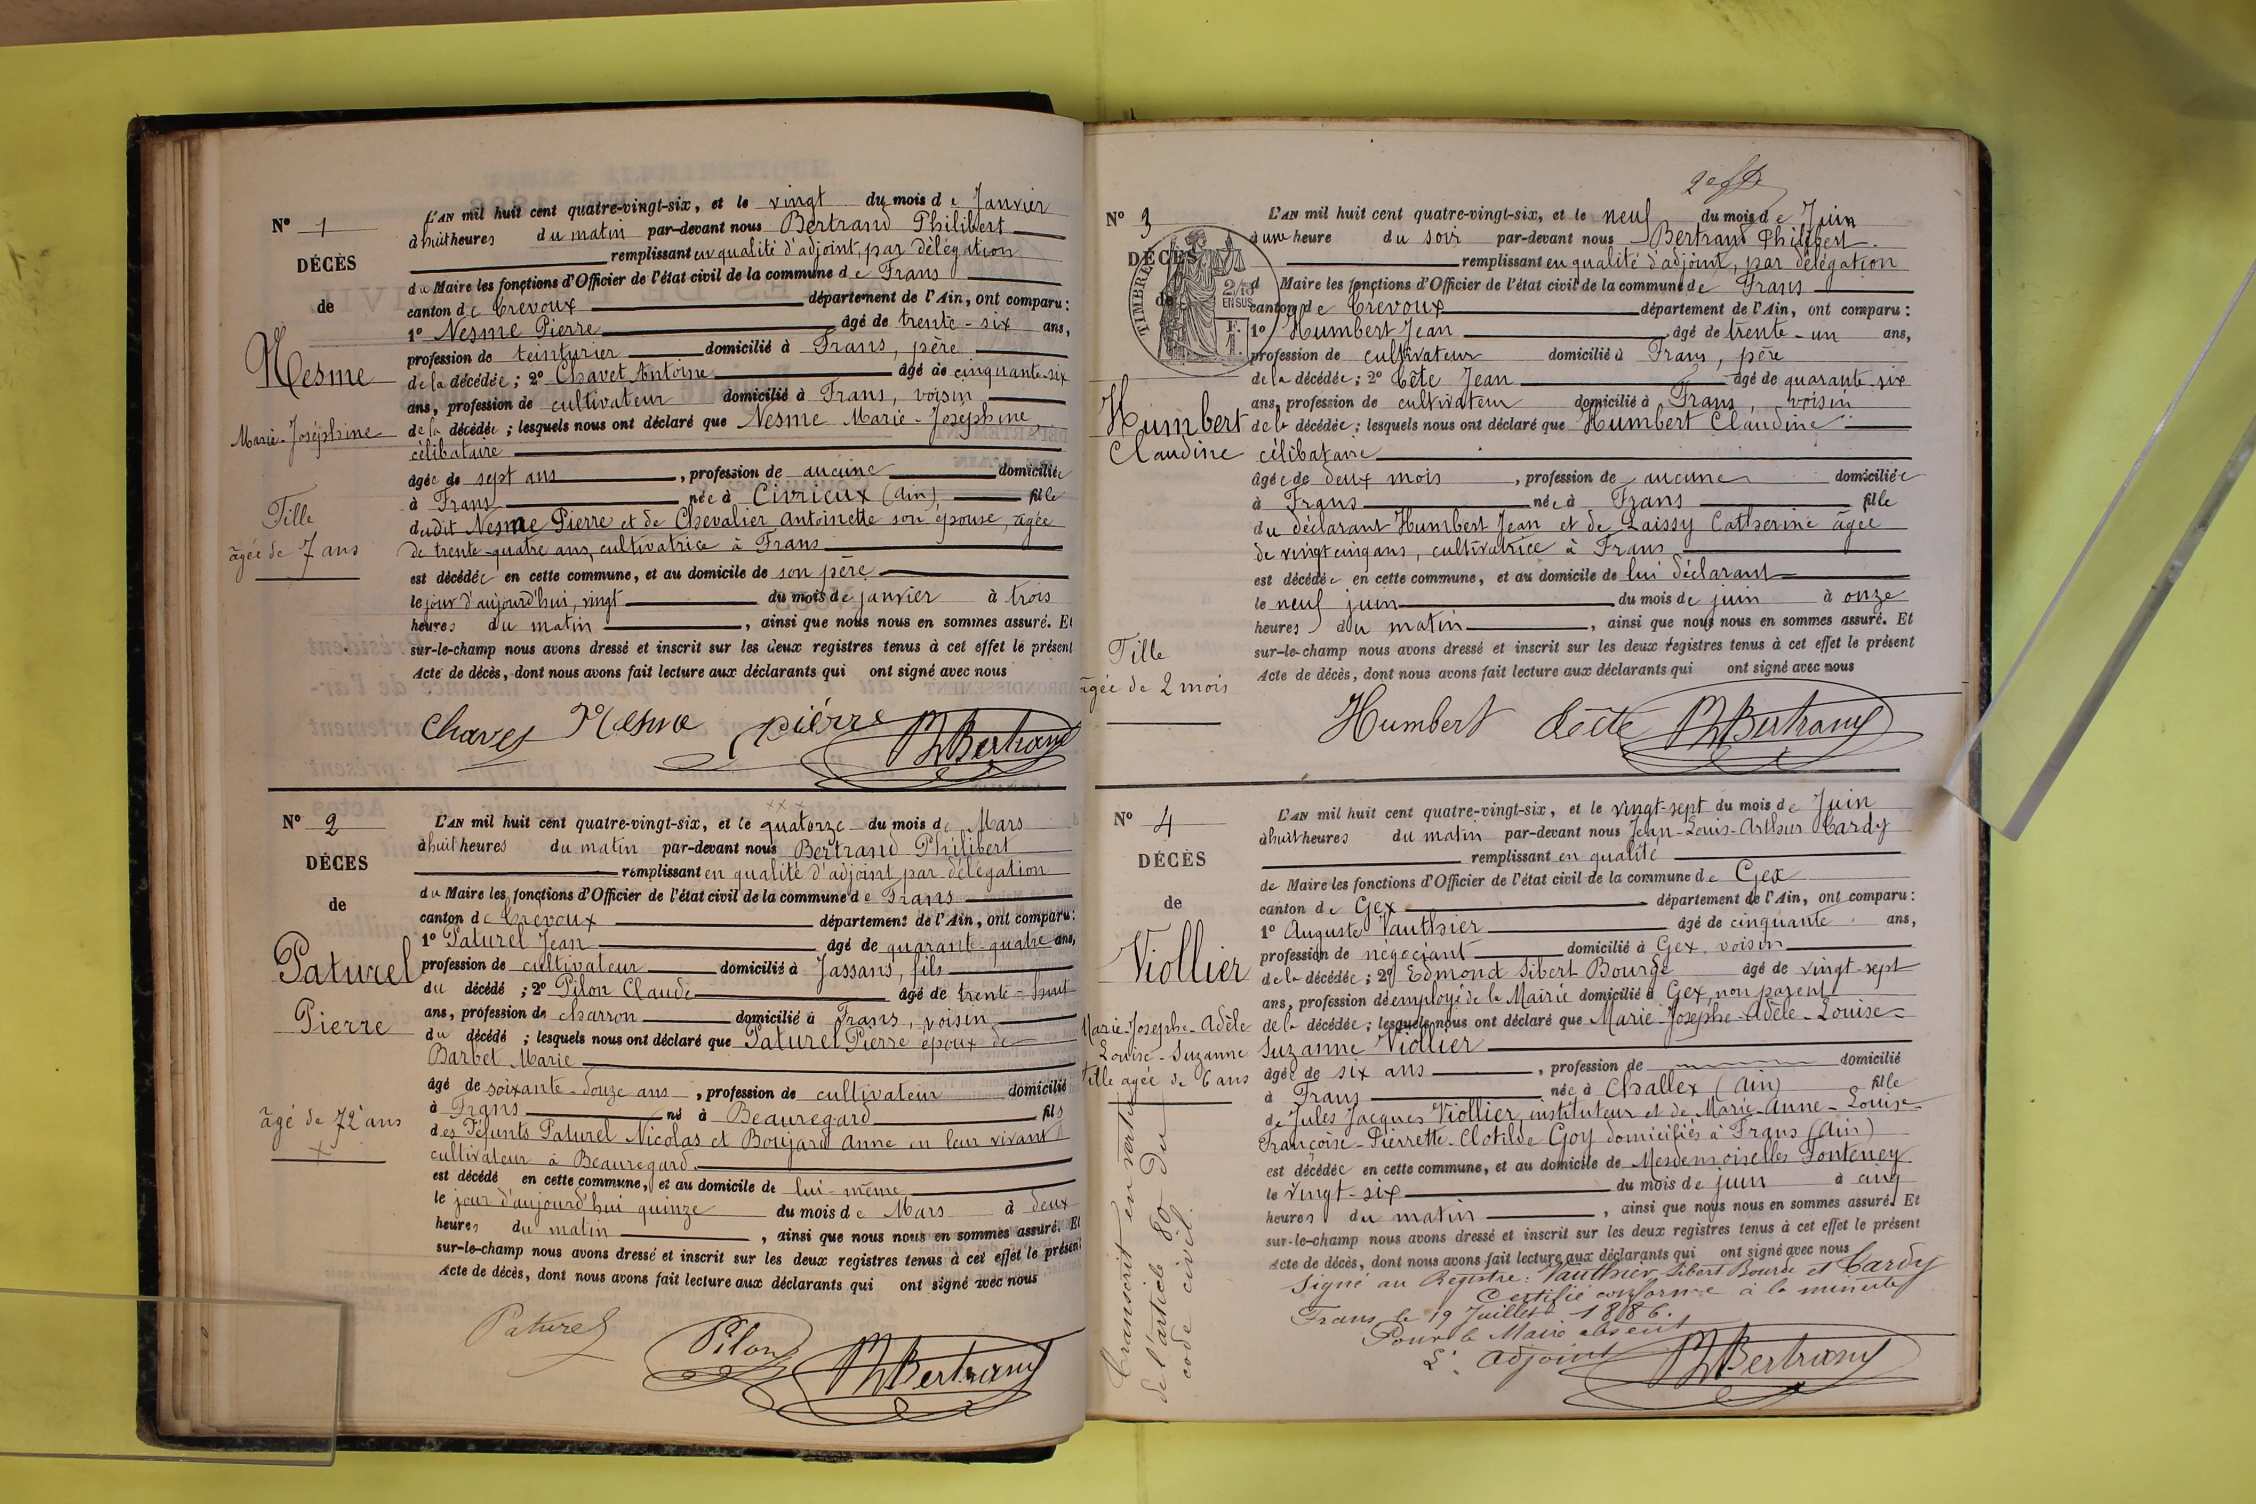 N° 1
DÉCÈS
de
Nesme
Marie-Joséphine
Fille
âgée de 7 ans
L'AN mil huit cent quatre-vingt-six, et le vingt du mois de Janvier
à huit heures du matin par-devant nous Bertrand Philibert
remplissant en qualité d'adjoint, par délégation
du Maire les fonctions d'Officier de l'état civil de la commune de Frans
canton de Trevoux département de l'Ain, ont comparu :
1° Nesme Pierre âgé de trente-six ans,
profession de teinturier domicilié à Frans, père
de la décédée ; 2° Chavet Antoine âgé de cinquante-six
ans, profession de cultivateur domicilié à Frans, voisin
de la décédée ; lesquels nous ont déclaré que Nesme Marie-Joséphine
célibataire
âgée de sept ans, profession de aucune domiciliée
à Frans née à Civrieux (ain), fille
dudit Nesme Pierre et de Chevalier Antoinette son épouse, âgée
de trente-quatre ans, cultivatrice à Frans
est décédée en cette commune, et au domicile de son père
le jour d'aujourd'hui, vingt du mois de janvier à trois
heures du matin, ainsi que nous nous en sommes assuré. Et
sur-le-champ nous avons dressé et inscrit sur les deux registres tenus à cet effet le présent
Acte de décès, dont nous avons fait lecture aux déclarants qui ont signé avec nous
Chavet Nesme pierre Ph Bertrand
N° 2
DÉCES
de
Paturel
Pierre
âgé de 72 ans
L'AN mil huit cent quatre-vingt-six, et le quatorze du mois de Mars
à huit heures du matin par-devant nous Bertrand Philibert
remplissant en qualité d'adjoint par délégation
du Maire les fonctions d'Officier de l'état civil de la commune de Frans
canton de Trevoux département de l'Ain, ont comparu :
1° Paturel Jean âgé de quarante-quatre ans,
profession de cultivateur domicilié à Jassans, fils
du décédé ; 2° Pilon Claude âgé de trente-huit
ans, profession de charron domicilié à Frans, voisin
du décédé ; lesquels nous ont déclaré que Paturel Pierre époux de
Barbet Marie
âgé de soixante-douze ans, profession de cultivateur domicilié
à Frans né à Beauregard fils
des défunts Paturel Nicolas et Boujard Anne en leur vivant
cultivateur à Beauregard.
est décédé en cette commune, et au domicile de lui-même
le jour d'aujourd'hui quinze du mois de Mars à deux
heures du matin, ainsi que nous nous en sommes assuré. Et
sur-le-champ nous avons dressé et inscrit sur les deux registres tenus à cet effet le présent
Acte de décès, dont nous avons fait lecture aux déclarants qui ont signé avec nous
Paturel Pilon Ph Bertrand
N° 3
DÉCÈS
de
TIMBRE
2/10
EN SUS
Humbert
Claudine
Fille
âgée de 2 mois
L'AN mil huit cent quatre-vingt-six, et le neuf du mois de Juin
à une heure du soir par-devant nous Bertrand Philibert
remplissant en qualité d'adjoint, par délégation
d Maire les fonctions d'Officier de l'état civil de la commune de Frans
canton de Trevoux département de l'Ain, ont comparu :
1° Humbert Jean âgé de trente-un ans,
profession de cultivateur domicilié à Frans, père
de la décédée ; 2° Tête Jean âgé de quarante-six
ans, profession de cultivateur domicilié à Frans, voisin
de la décédée ; lesquels nous ont déclaré que Humbert Claudine
célibataire
âgée de deux mois, profession de aucune domiciliée
à Frans née à Frans fille
du déclarant Humbert Jean et de Laissy Catherine âgée
de vingt cinq ans, cultivatrice à Frans
est décédée en cette commune, et au domicile de lui déclarant
le neuf juin du mois de juin à onze
heures du matin, ainsi que nous nous en sommes assuré. Et
sur-le-champ nous avons dressé et inscrit sur les deux registres tenus à cet effet le présent
Acte de décès, dont nous avons fait lecture aux déclarants qui ont signé avec nous
Humbert Tête Ph Bertrand
N° 4
DÉCÈS
de
Viollier
Marie-Josephe-Adèle
Louise-Suzanne
fille agée de 6 ans
Transcrit en vertu
de l'article 80 du
code civil.
L'AN mil huit cent quatre-vingt-six, et le vingt-sept du mois de Juin
à huit heures du matin par-devant nous Jean-Louis-Arthur Cardy
remplissant en qualité
de Maire les fonctions d'Officier de l'état civil de la commune de Gex
canton de Gex département de l'Ain, ont comparu :
1° Auguste Vauthier âgé de cinquante ans,
profession de négociant domicilié à Gex, voisin
de la décédée ; 2° Edmond Sibert Bourde âgé de vingt-sept
ans, profession d'employé de la Mairie domicilié à Gex, non parent
de la décédée ; lesquels nous ont déclaré que Marie-Josephe-Adèle-Louise-
Suzanne Viollier
âgée de six ans, profession de domicilié
à Frans née à Challex (Ain) fille
de Jules Jacques Viollier, instituteur et de Marie-Anne-Louise-
Françoise-Pierrette-Clotilde Goy domiciliés à Frans (Ain)
est décédée en cette commune, et au domicile de Mesdemoiselles Fonteney
le vingt-six du mois de juin à cinq
heures du matin, ainsi que nous nous en sommes assuré. Et
sur-le-champ nous avons dressé et inscrit sur les deux registres tenus à cet effet le présent
Acte de décès, dont nous avons fait lecture aux déclarants qui ont signé avec nous
Signé au Registre : Vauthier, Sibert Bourde et Cardy
Certifié conforme à la minute
Frans le 19 Juillet 1886.
Pour le Maire absent
L'adjoint Ph Bertrand